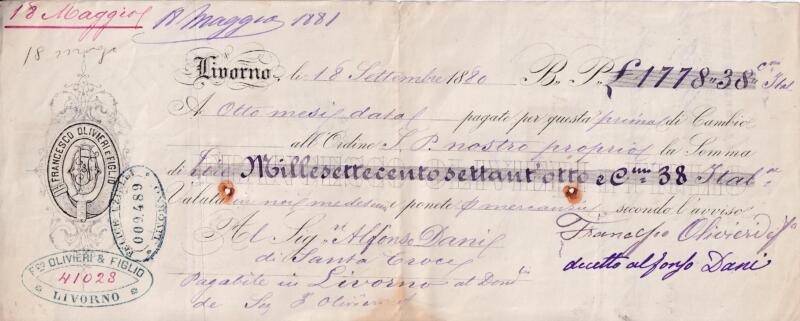 18 Maggio
18 Maggio 1881
18
Livorno, li 18 Settembre 1880 B. P. £ 1778"38 Cmi Ital
A Otto mesi data pagate per questa prima di Cambio
all'Ordine S. P. nostro proprio la Somma
di Lire Millesettecentosettant'otto e Cmi 38 Ital
Valuta in noi medesimi e ponete mercanzie secondo l'avviso
Al Sigr Alfonso Dani
di Santa Croce
Pagabile in Livorno al Domo
de Sig F Olivieri
Francesco Olivieri & fo
accetto alfonso Dani
FRANCESCO OLIVIERI E FIGLIO
009489
Fco OLIVIERI & FIGLIO
41023
LIVORNO